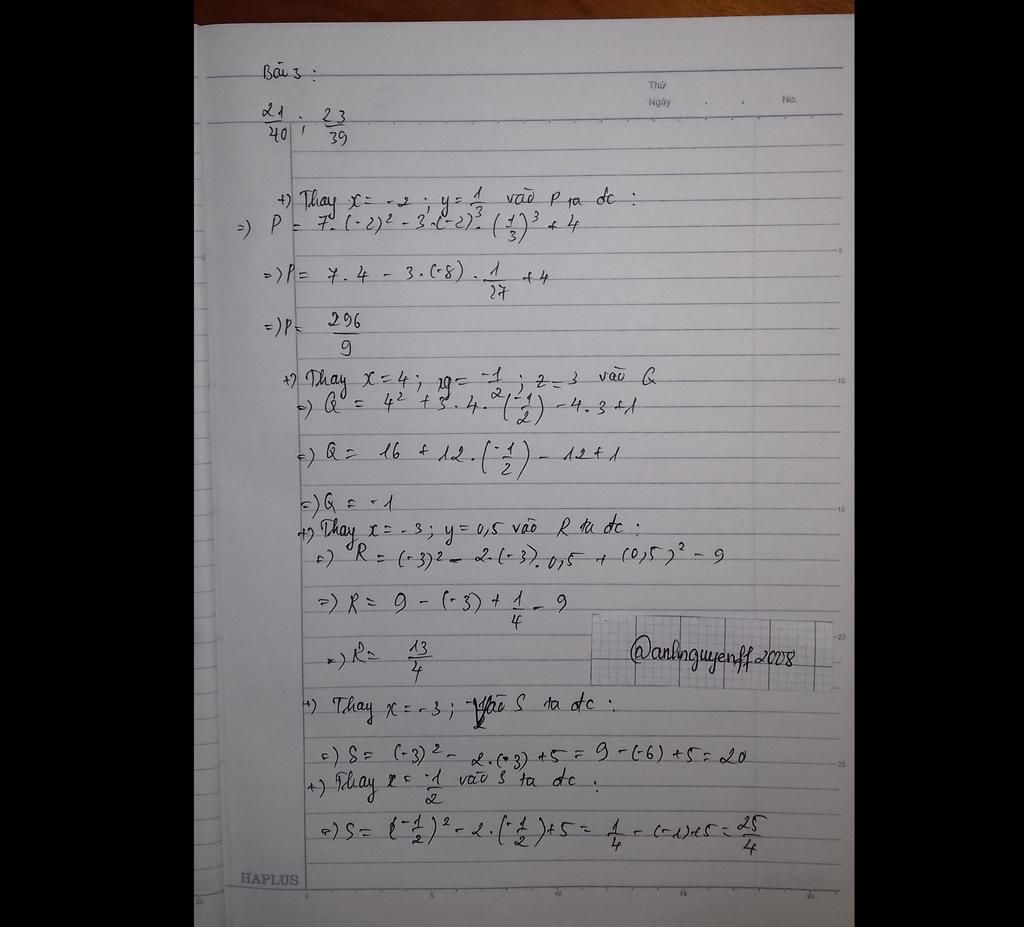 Bài 3 :
Thứ
Ngày . . No.
21/40 ; 23/39
+) Thay x = -2 ; y = 1/3 vào P ta đc :
=) P = 7.(-2)² - 3.(-2)³.(1/3)³ + 4
=) P = 7.4 - 3.(-8).1/27 + 4
=) P = 296/9
+) Thay x = 4 ; y = -1/2 ; z = 3 vào Q
=) Q = 4² + 3.4.(-1/2) - 4.3 + 1
=) Q = 16 + 12.(-1/2) - 12 + 1
=) Q = -1
+) Thay x = -3 ; y = 0,5 vào R ta đc :
=) R = (-3)² - 2.(-3).0,5 + (0,5)² - 9
=) R = 9 - (-3) + 1/4 - 9
=) R = 13/4
@anhnguyenff2008
+) Thay x = -3 ; vào S ta đc :
=) S = (-3)² - 2.(-3) + 5 = 9 - (-6) + 5 = 20
+) Thay x = -1/2 vào S ta đc :
=) S = (-1/2)² - 2.(-1/2) + 5 = 1/4 - (-1) + 5 = 25/4
HAPLUS
0 5 10 15 20
5
10
15
20
25